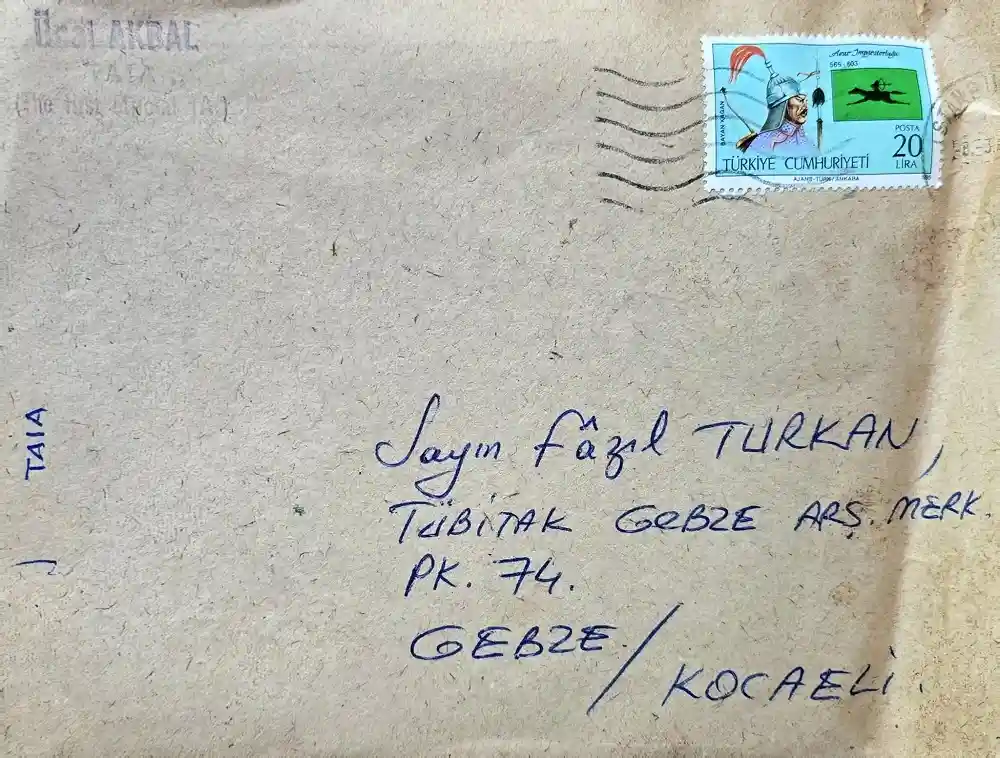 AKBAL
Avar İmparatorluğu
565 - 803
BAYAN KAGAN
POSTA
20
LİRA
TÜRKİYE CUMHURİYETİ
AJANS-TÜRK/ANKARA
TAIA
Sayın Fâzıl TURKAN,
TÜBİTAK GEBZE ARŞ. MERK.
PK. 74.
GEBZE /
KOCAELİ.